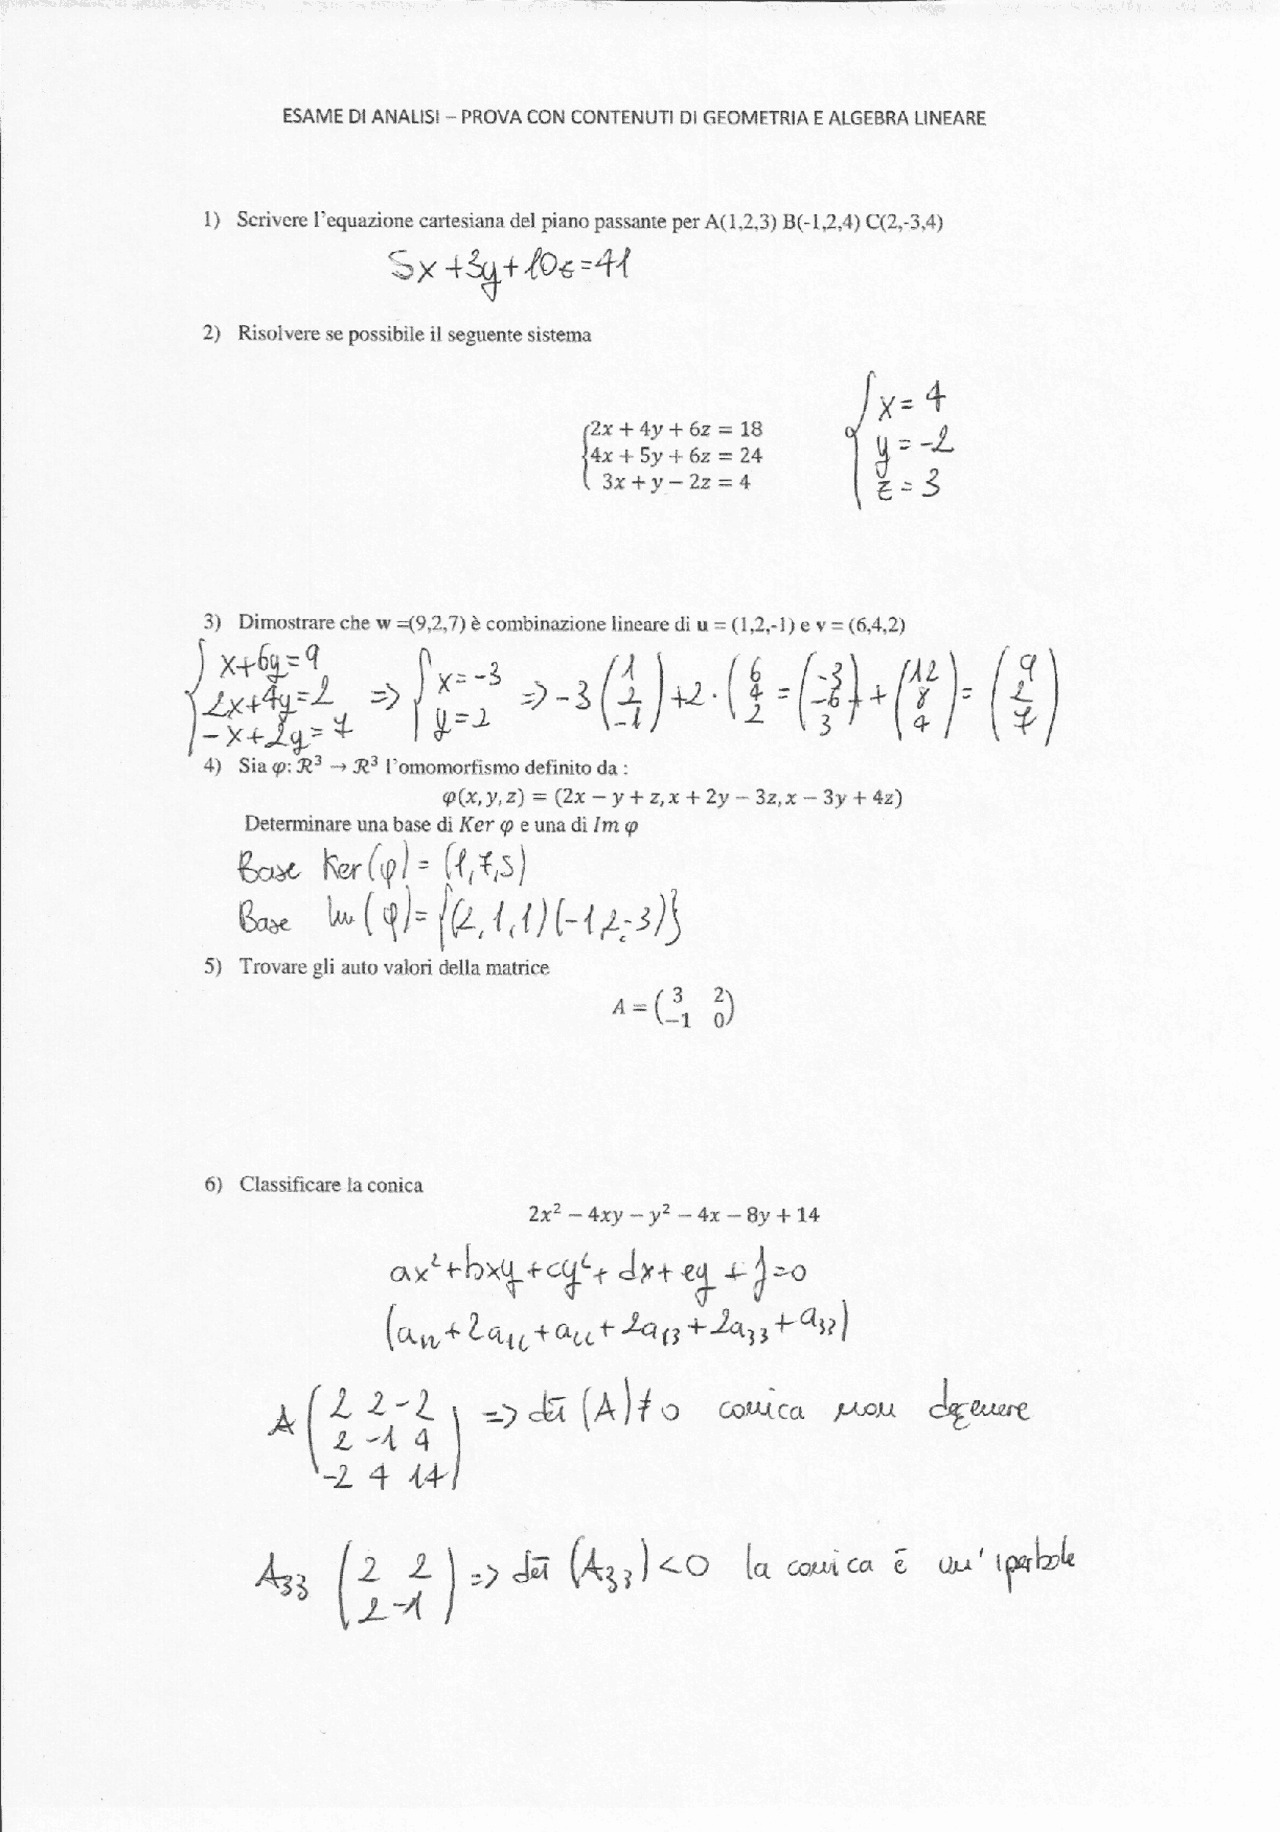 ESAME DI ANALISI – PROVA CON CONTENUTI DI GEOMETRIA E ALGEBRA LINEARE
1) Scrivere l'equazione cartesiana del piano passante per A(1,2,3) B(-1,2,4) C(2,-3,4)
5x+3y+10z=41
2) Risolvere se possibile il seguente sistema
{2x + 4y + 6z = 18
4x + 5y + 6z = 24
3x + y − 2z = 4
{x = 4
y = -2
z = 3
3) Dimostrare che w =(9,2,7) è combinazione lineare di u = (1,2,-1) e v = (6,4,2)
{x+6y=9
2x+4y=2
-x+2y=7
=> {x=-3
y=2
=> -3 (1 2 -1) +2· (6 4 2 = (-3 -6 3) + (12 8 4) = (9 2 7)
4) Sia φ: ℛ³ → ℛ³ l'omomorfismo definito da :
φ(x, y, z) = (2x − y + z, x + 2y − 3z, x − 3y + 4z)
Determinare una base di Ker φ e una di Im φ
Base Ker(φ) = (1,7,5)
Base Im(φ) = {(2,1,1)(-1,2,-3)}
5) Trovare gli auto valori della matrice
A = (3 2
−1 0)
6) Classificare la conica
2x² − 4xy − y² − 4x − 8y + 14
ax²+bxy+cy²+dx+ey+f=0
A (2 2 -2
2 -1 4
-2 4 14)
=> det (A) ≠ 0 conica non degenere
A33 (2 2
2 -1)
=> det (A33) <0 la conica è un' iperbole